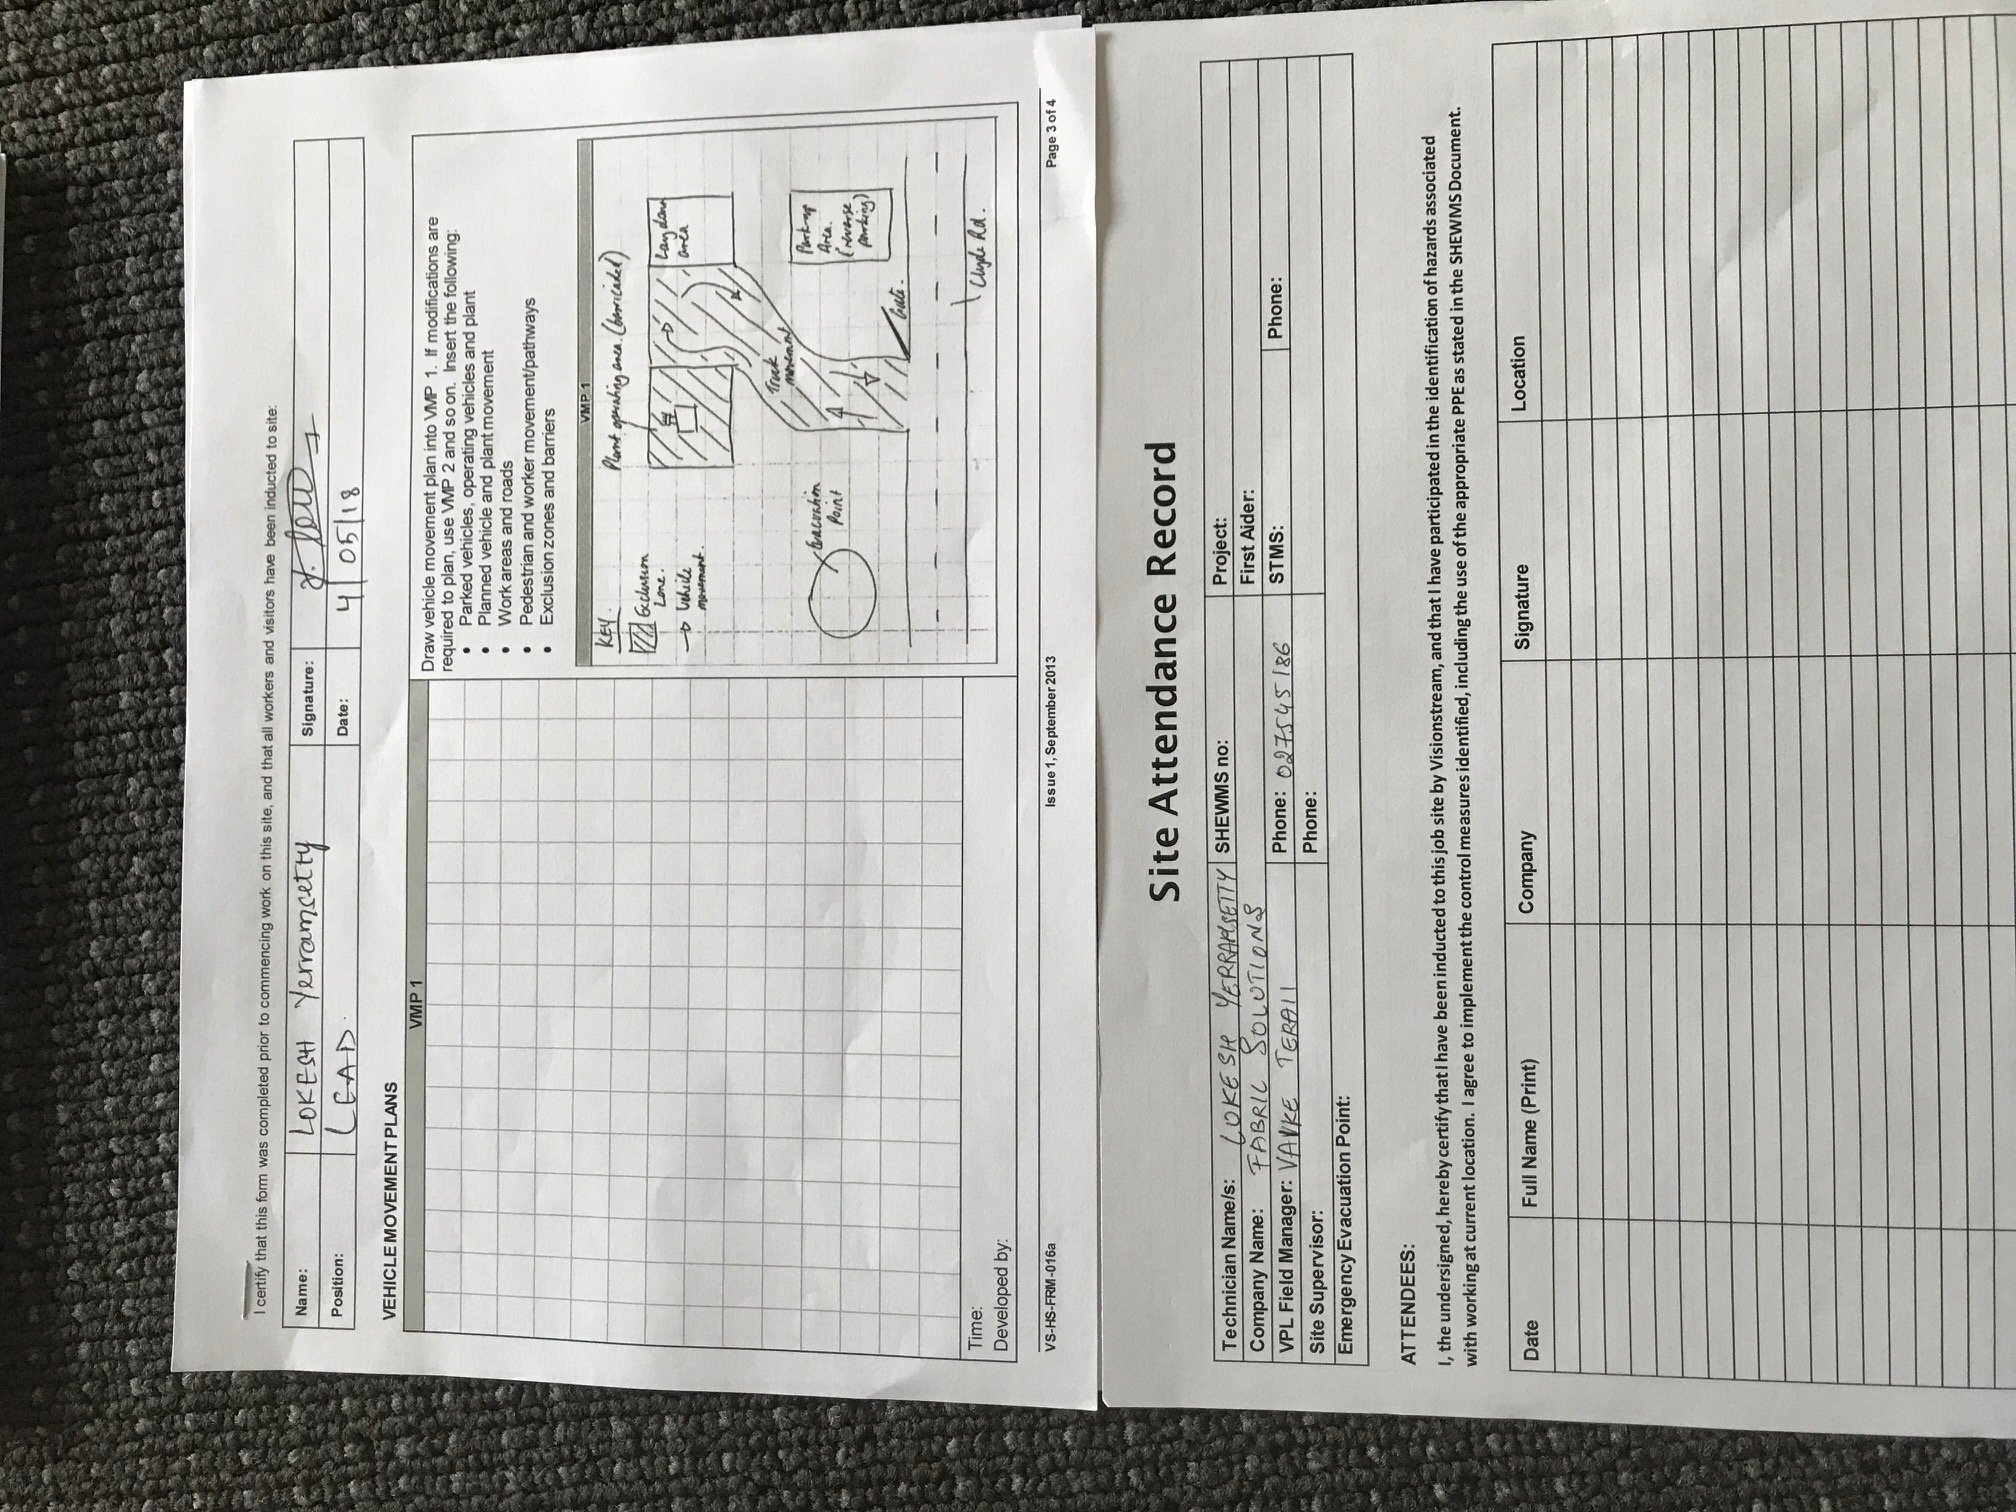 I certify that this form was completed prior to commencing work on this site, and that all workers and visitors have been inducted to site:
Name: LOKESH Yerramsetty Signature:
Position: LEAD. Date: 4/05/18
VEHICLE MOVEMENT PLANS
VMP 1
Time:
Developed by:
Draw vehicle movement plan into VMP 1. If modifications are
required to plan, use VMP 2 and so on. Insert the following:
• Parked vehicles, operating vehicles and plant
• Planned vehicle and plant movement
• Work areas and roads
• Pedestrian and worker movement/pathways
• Exclusion zones and barriers
VMP 1
KEY.
Exclusion
Zone.
Vehicle
movement.
Plant operating area. (barricaded)
Laydown
area
Truck
movement
Evacuation
Point
Park-up
Area.
(reverse
parking)
Gate.
Clyde Rd.
VS-HS-FRM-016a Issue 1, September 2013 Page 3 of 4
Site Attendance Record
Technician Name/s: LOKESH YERRAMSETTY SHEWMS no: Project:
Company Name: FABRIC SOLUTIONS First Aider:
VPL Field Manager: Phone: 027545186 STMS: Phone:
Site Supervisor: Phone:
Emergency Evacuation Point:
ATTENDEES:
I, the undersigned, hereby certify that I have been inducted to this job site by Visionstream, and that I have participated in the identification of hazards associated
with working at current location. I agree to implement the control measures identified, including the use of the appropriate PPE as stated in the SHEWMS Document.
Date Full Name (Print) Company Signature Location